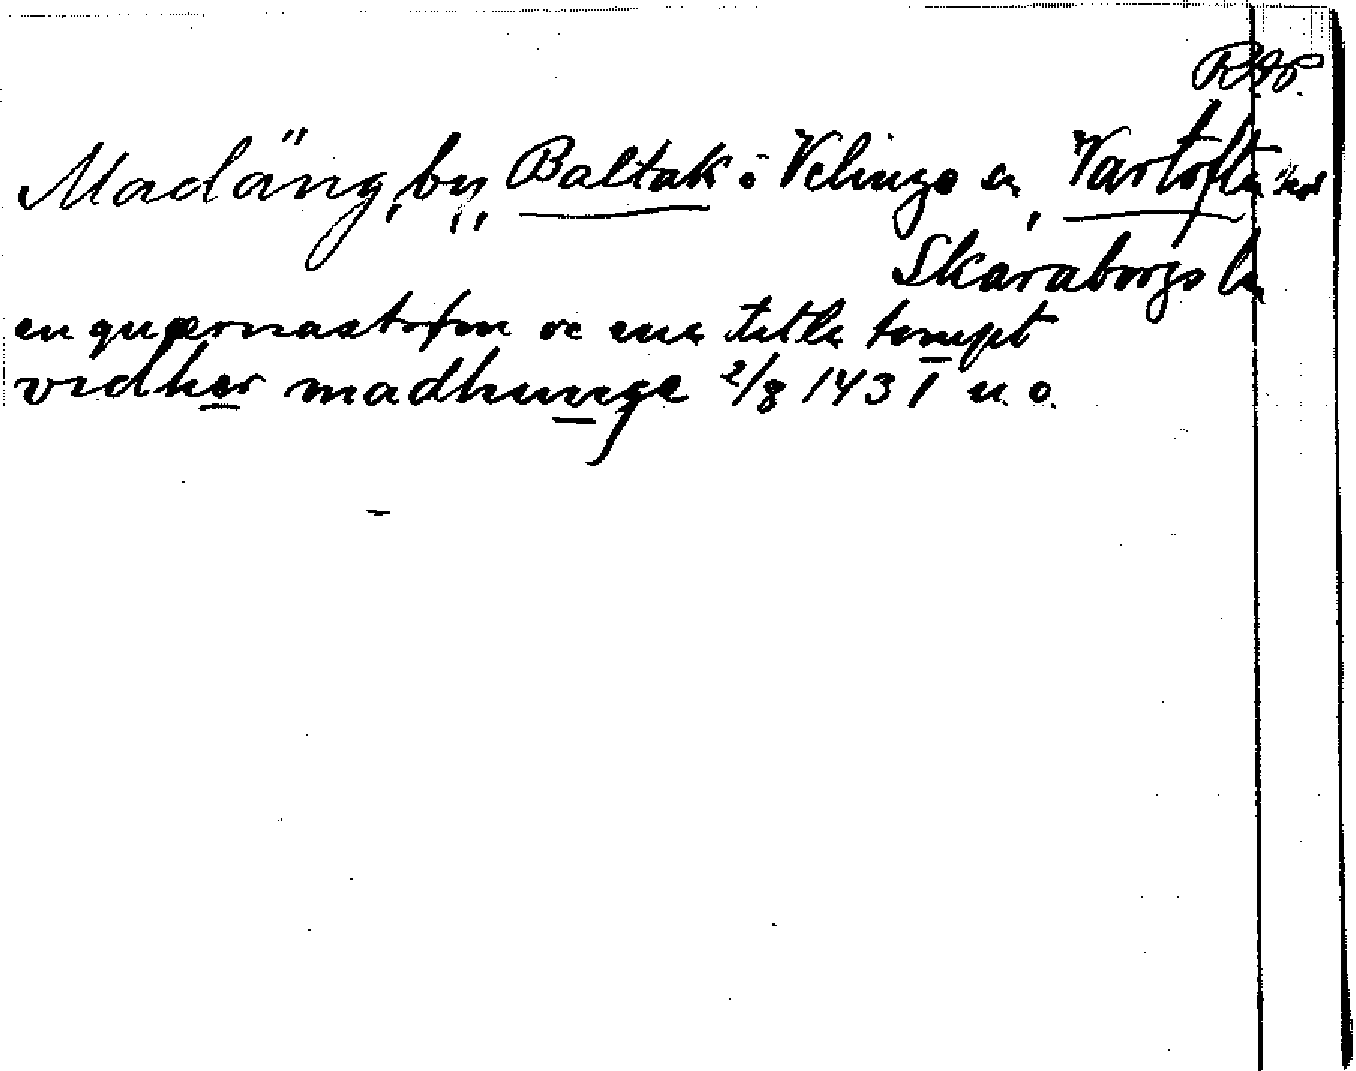 RAP.
Madäng, by, Baltak i Velinge sn, Vartofta hd
Skaraborgs län
en quærnastrøm oc ena litla tompt
vidher madhunge 2/8 1431 u. o.